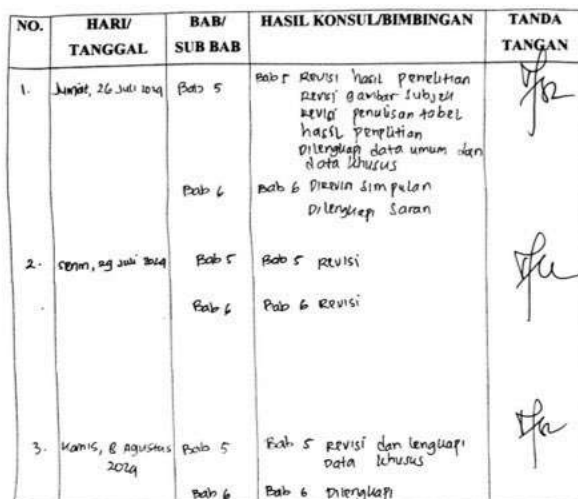 NO. HARI/ TANGGAL BAB/ SUB BAB HASIL KONSUL/BIMBINGAN TANDA TANGAN
1. Jumat, 26 Juli 2024 Bab 5 Bab 5 Revisi hasil penelitian
Revisi gambar subjek
Revisi penulisan tabel
hasil penelitian
Dilengkapi data umum dan
data khusus
Bab 6 Bab 6 Direvisi simpulan
Dilengkapi Saran
2. Senin, 29 Juli 2024 Bab 5 Bab 5 Revisi
Bab 6 Bab 6 Revisi
3. Kamis, 8 Agustus 2024 Bab 5 Bab 5 Revisi dan lengkapi
Data khusus
Bab 6 Bab 6 Dilengkapi